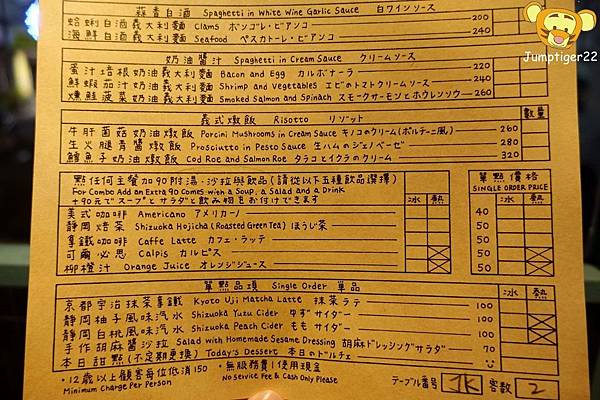 蒜香白酒 Spaghetti in White Wine Garlic Sauce 白ワインソース
蛤蜊白酒義大利麵 Clams ボンゴレ・ビアンコ 200
海鮮白酒義大利麵 Seafood ペスカトーレ・ビアンコ 240
奶油醬汁 Spaghetti in Cream Sauce クリームソース
蜜汁培根奶油義大利麵 Bacon and Egg カルボナーラ 220
鮮蝦茄汁奶油義大利麵 Shrimp and Vegetables エビのトマトクリームソース 240
燻鮭菠菜奶油義大利麵 Smoked Salmon and Spinach スモークサーモンとホウレンソウ 260
義式燉飯 Risotto リゾット 數量
牛肝菌菇奶油燉飯 Porcini Mushrooms in Cream Sauce キノコのクリーム(ポルチーニ風) 260
生火腿青醬燉飯 Prosciutto in Pesto Sauce 生ハムのジェノベーゼ 280
鱈魚子奶油燉飯 Cod Roe and Salmon Roe タラコとイクラのクリーム 320
點任何主餐加90附湯・沙拉與飲品(請從以下五種飲品選擇)
For Combo Add an Extra 90 Comes with a Soup, a Salad and a Drink
+90元でスープとサラダと飲み物をお付けできます
冰 熱
單點價格
SINGLE ORDER PRICE
美式咖啡 Americano アメリカーノ 40
靜岡焙茶 Shizuoka Hojicha (Roasted Green Tea) ほうじ茶 50
拿鐵咖啡 Caffe Latte カフェ・ラッテ 50
可爾必思 Calpis カルピス 50
柳橙汁 Orange Juice オレンジジュース 50
單點品項 Single Order 単品 冰 熱
京都宇治抹茶拿鐵 Kyoto Uji Matcha Latte 抹茶ラテ 100
靜岡柚子風味汽水 Shizuoka Yuzu Cider ゆずサイダー 100
靜岡白桃風味汽水 Shizuoka Peach Cider ももサイダー 100
手作胡麻醬沙拉 Salad with Homemade Sesame Dressing 胡麻ドレッシングサラダ 70
本日甜點(不定期更換) Today's Dessert 本日のドルチェ
・12歲以上顧客每位低消150
Minimum Charge Per Person
・無服務費|使用現金
No Service Fee & Cash Only Please
テーブル番号 JK 客数 2
Jumptiger22